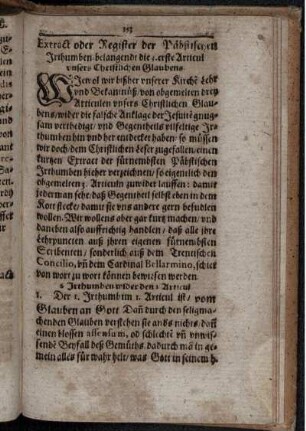 Extract oder Register der Päbstischen
Irthumben belangendt die 2. erste Articul
vnsers Christlichen Glaubens.
Wiewol wir bißher vnserer Kirchē Lehr
vnd Bekantnuß, von obgemelten drey
Articulen vnsers Christlichen Glau-
bens, wider die falsche Anklage der Jesuitē gnug-
sam vertheidigt vnd Gegentheils vilfeltige Ir-
thumben hin vnd her entdecket haben, so müssen
wir doch dem Christlichen Leser zugefallen, einen
kurtzen Extract der fürnembsten Päbstischen
Irthumben hieher verzeichnen, so eigentlich den
obgemelten 3. Articuln zuwider lauffen: damit
jederman sehe, daß Gegentheil selbst eben in dem
Kott stecke, damit sie vns andere gern befudlen
wollen. Wir wollens aber gar kurtz machen, vnd
daneben also auffrichtig handlen, daß alle ihre
Lehrpuncten auß ihren eigenen fürnembsten
Scribenten, sonderlich auß dem Trentischen
Concilio, vñ dem Cardinal Bellarmino, schier
von wort zu wort können bewisen werden
Irthumben wider den 1 Articul.
1. Der 1. Irthumb im 1. Articul ist, vom
Glauben an Gott Dañ durch den seligma-
chenden Glauben verstehen sie anders nichts, dann
einen blossen assensum, od schlechtē vñ vnwis-
sende Beyfall deß Gemüths, dadurch mā in ge-
mein alles für wahr helt, was Gott in seinem h.